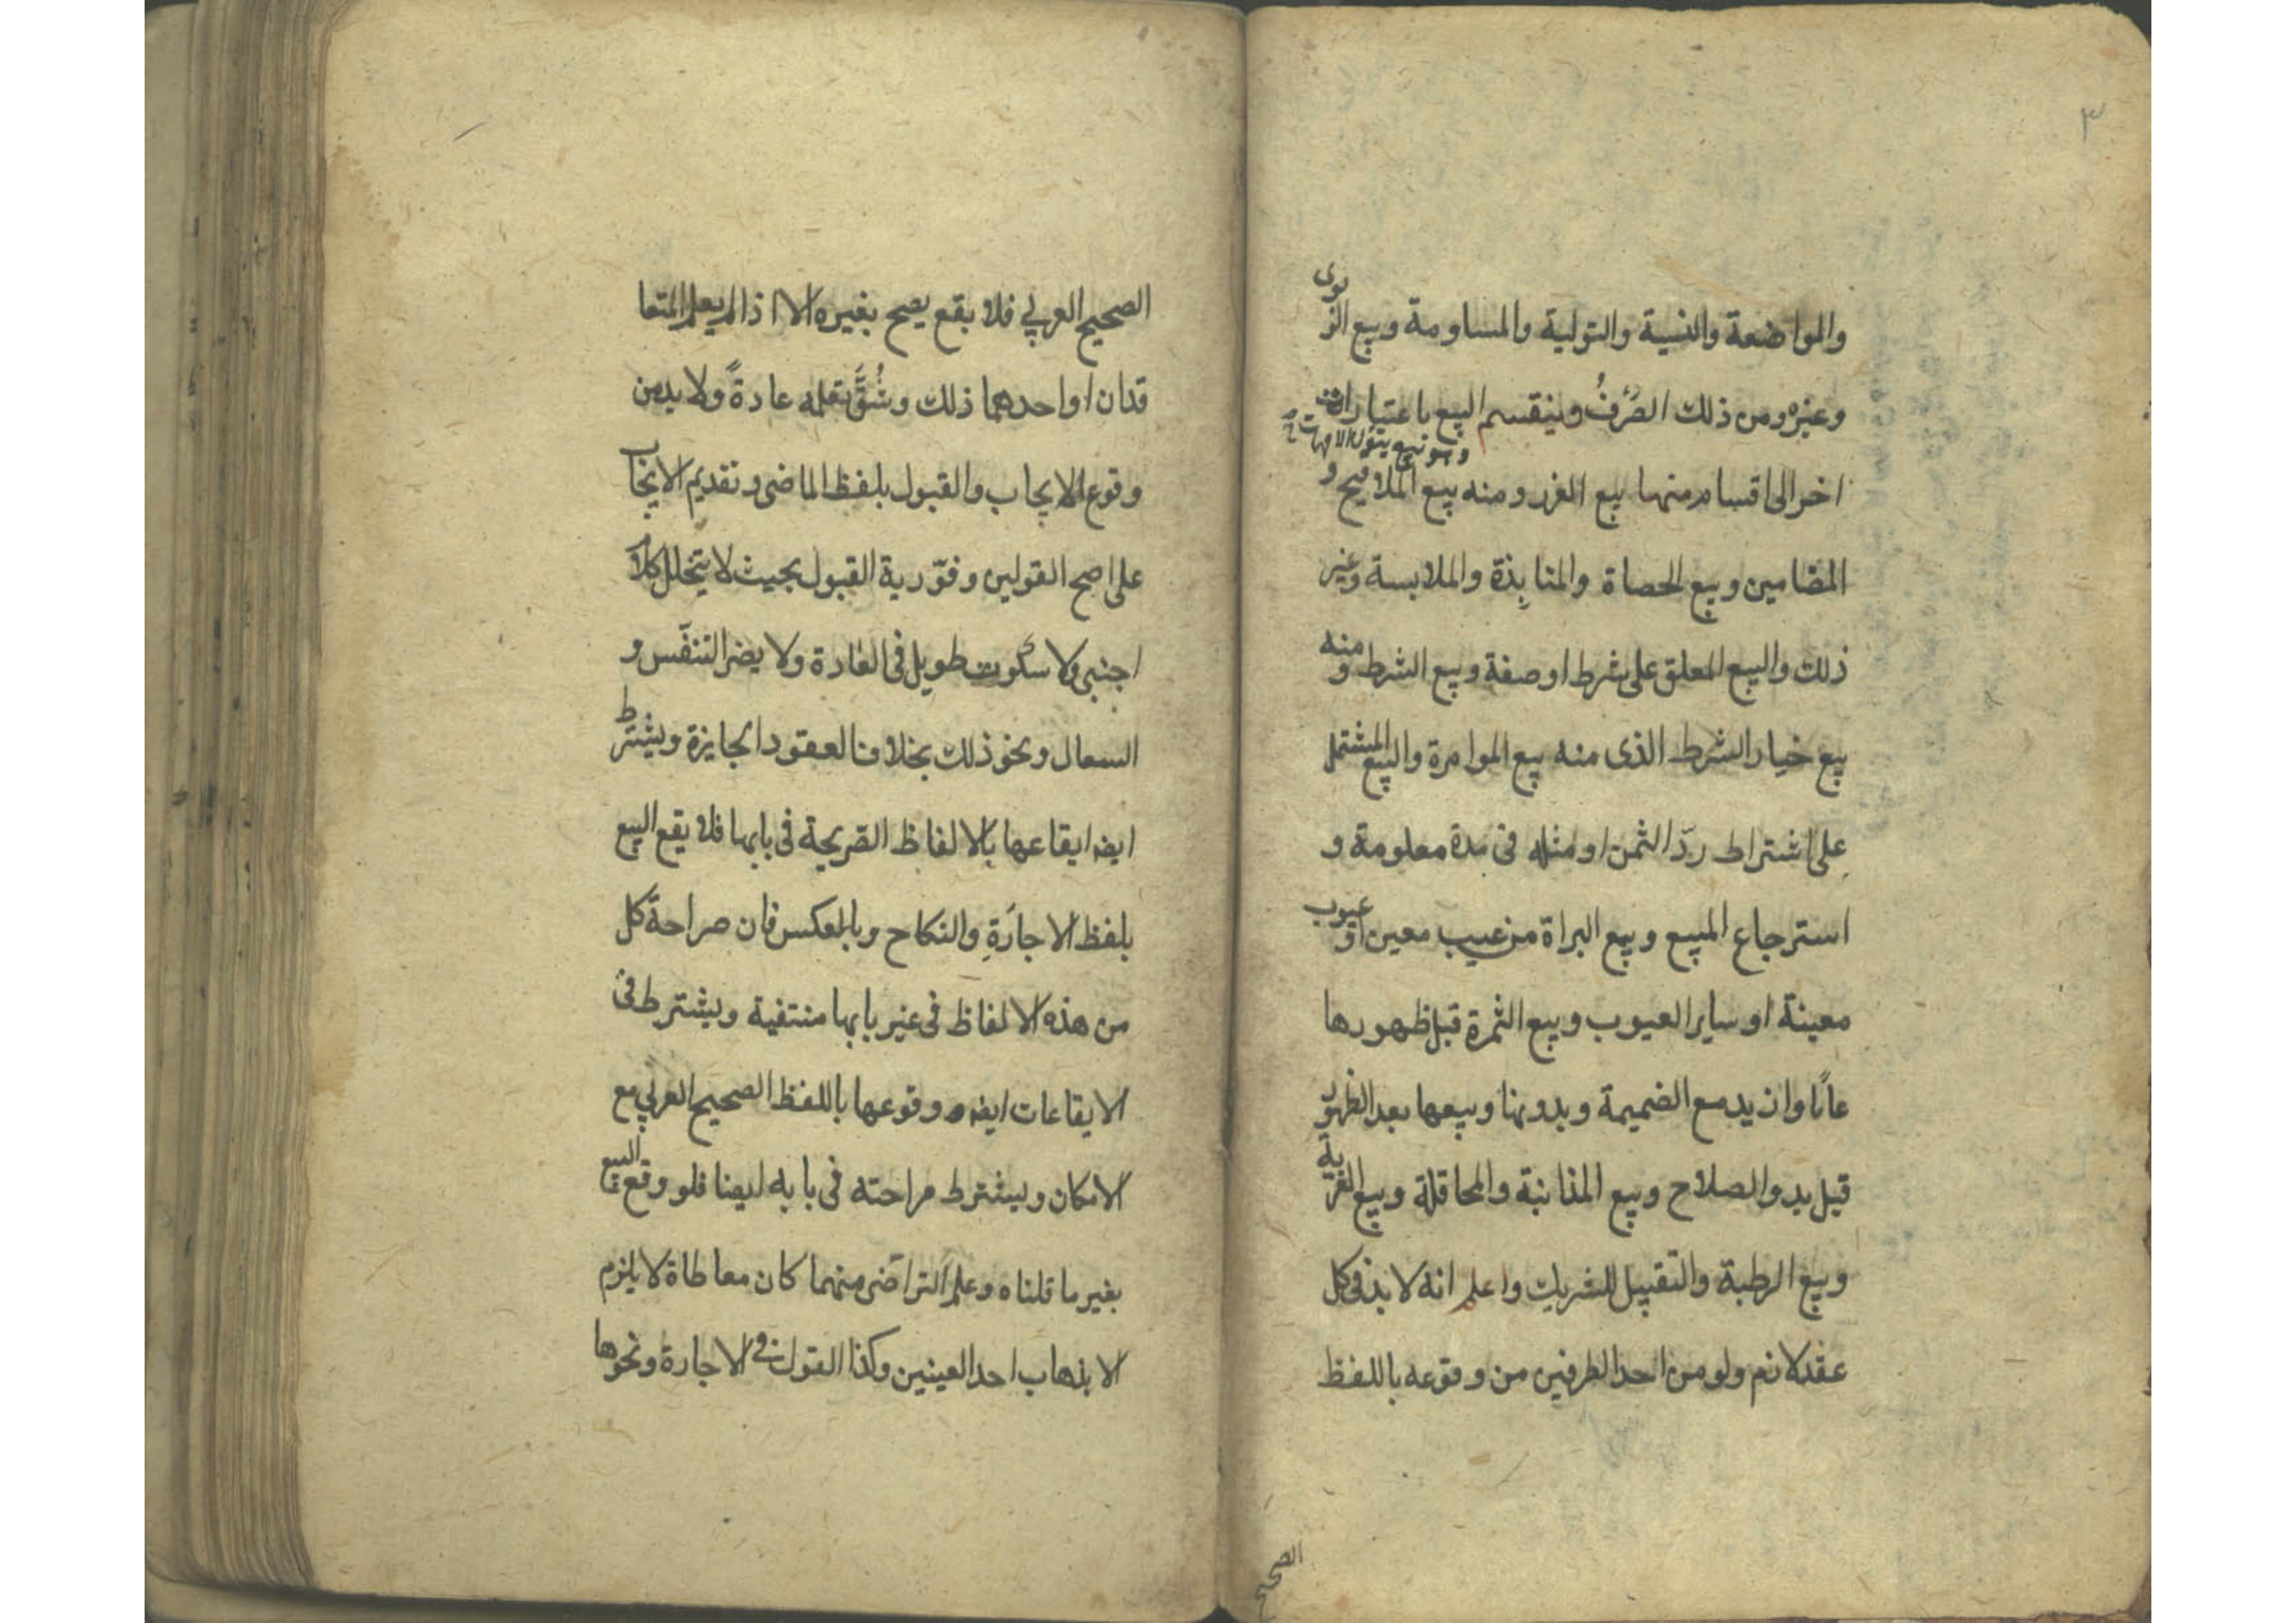 ٣
والمواضعة والنسية والتولية والمساومة وبيع الربوى
وغيره ومن ذلك الصَرْفُ وينقسم البيع باعتبارات
اخر الى اقسام منها بيع الغرر ومنه بيع الملاقيح و
المضامين وبيع الحصاة والمنابِذة والملابسة وغير
ذلك والبيع المعلق على شرط او صفة وبيع الشرط ومنه
بيع خيار الشرط الذى منه بيع الموامرة والبيع المشتمل
على اشتراط ردّ الثمن او مثله فى مدة معلومة و
استرجاع المبيع وبيع البراة من عيب معين او عيوب
معينة او ساير العيوب وبيع الثمرة قبل ظهورها
عامًا وازيد مع الضميمة وبدونها وبيعها بعد الظهور
قبل بدو الصلاح وبيع المذابنة والمحاقلة وبيع العرية
وبيع الرطبة والتقبيل للشريك واعلم انه لا بد فى كل
عقد لازم ولو من احد الطرفين من وقوعه باللفظ
الصحيح
الصحيح العربي فلا بقع يصح بغيره الا اذا لم يعلم المتعا
قدان او احدهما ذلك وشُقَّ تعلمه عادةً ولا بد من
وقوع الايجاب والقبول بلفظ الماضى وتقديم الايجاب
على اصح القولين وفوّرية القبول بحيث لا يتخلل كلام
اجنبى ولا سكوت طويل فى العادة ولا يضر التنفّس و
السعال ونحو ذلك بخلاف العقود الجايزة ويشترط
ايضا ايقاعها بالالفاظ الصريحة فى بابها فلا يقع البيع
بلفظ الاجارَةِ والنكاح وبالعكس فان صراحة كل
من هذه الالفاظ فى غير بابها منتفية ويشترط فى
الايقاعات ايضا وقوعها باللفظ الصحيح العربي مع
الامكان ويشترط صراحته فى بابه ايضا فلو وقع البيع
بغير ما قلناه وعلم التراضى منهما كان معاطاة لا يلزم
الا بذهاب احد العينين وكذا القول فى الاجارة ونحوها